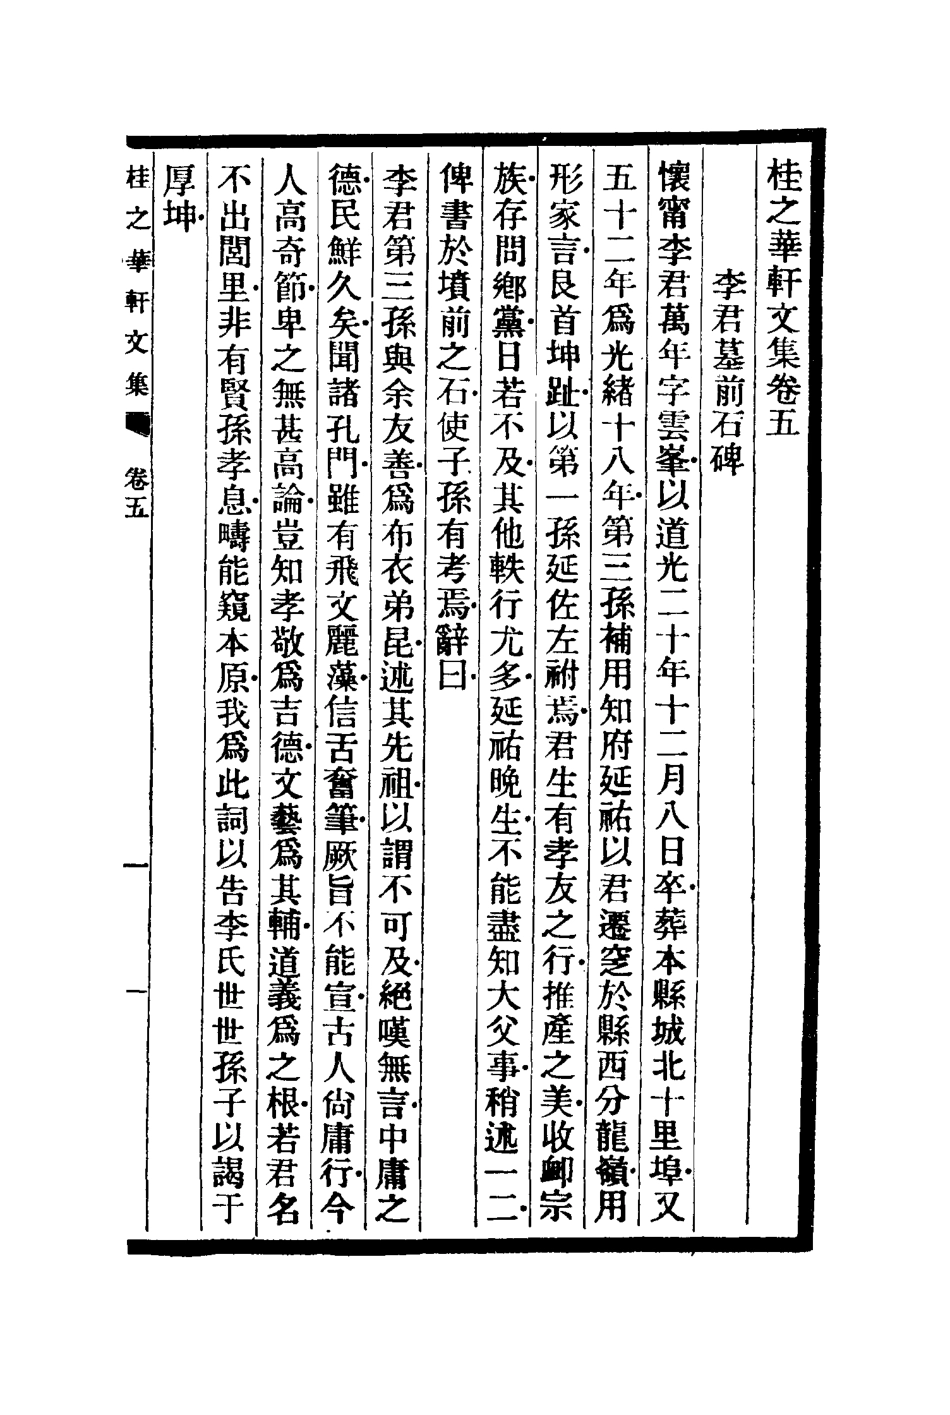 桂之華軒文集卷五
李君墓前石碑
懷甯李君萬年字雲峯以道光二十年十二月八日卒葬本縣城北十里埠又
五十二年爲光緒十八年第三孫補用知府延祐以君遷窆於縣西分龍嶺用
形家言艮首坤趾以第一孫延佐左祔焉君生有孝友之行推產之美收卹宗
族存問鄉黨日若不及其他軼行尤多延祐晚生不能盡知大父事稍述一二
俾書於墳前之石使子孫有考焉辭曰
李君第三孫與余友善爲布衣弟昆述其先祖以謂不可及絕嘆無言中庸之
德民鮮久矣聞諸孔門雖有飛文麗藻信舌奮筆厥旨不能宣古人尙庸行今
人高奇節卑之無甚高論豈知孝敬爲吉德文藝爲其輔道義爲之根若君名
不出閭里非有賢孫孝息疇能窺本原我爲此詞以告李氏世世孫子以謁于
厚坤
桂之華軒文集 卷五 一